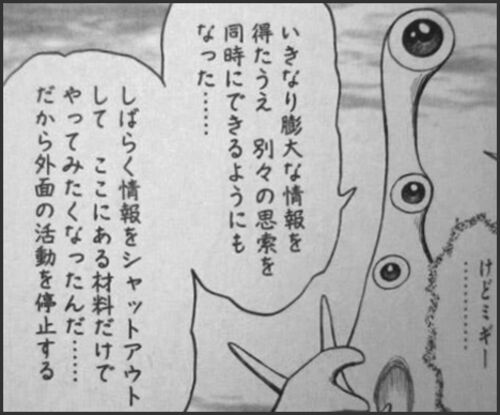 けどミギー…………
いきなり膨大な情報を
得たうえ　別々の思索を
同時にできるようにも
なった……
しばらく情報をシャットアウト
して　ここにある材料だけで
やってみたくなったんだ……
だから外面の活動を停止する